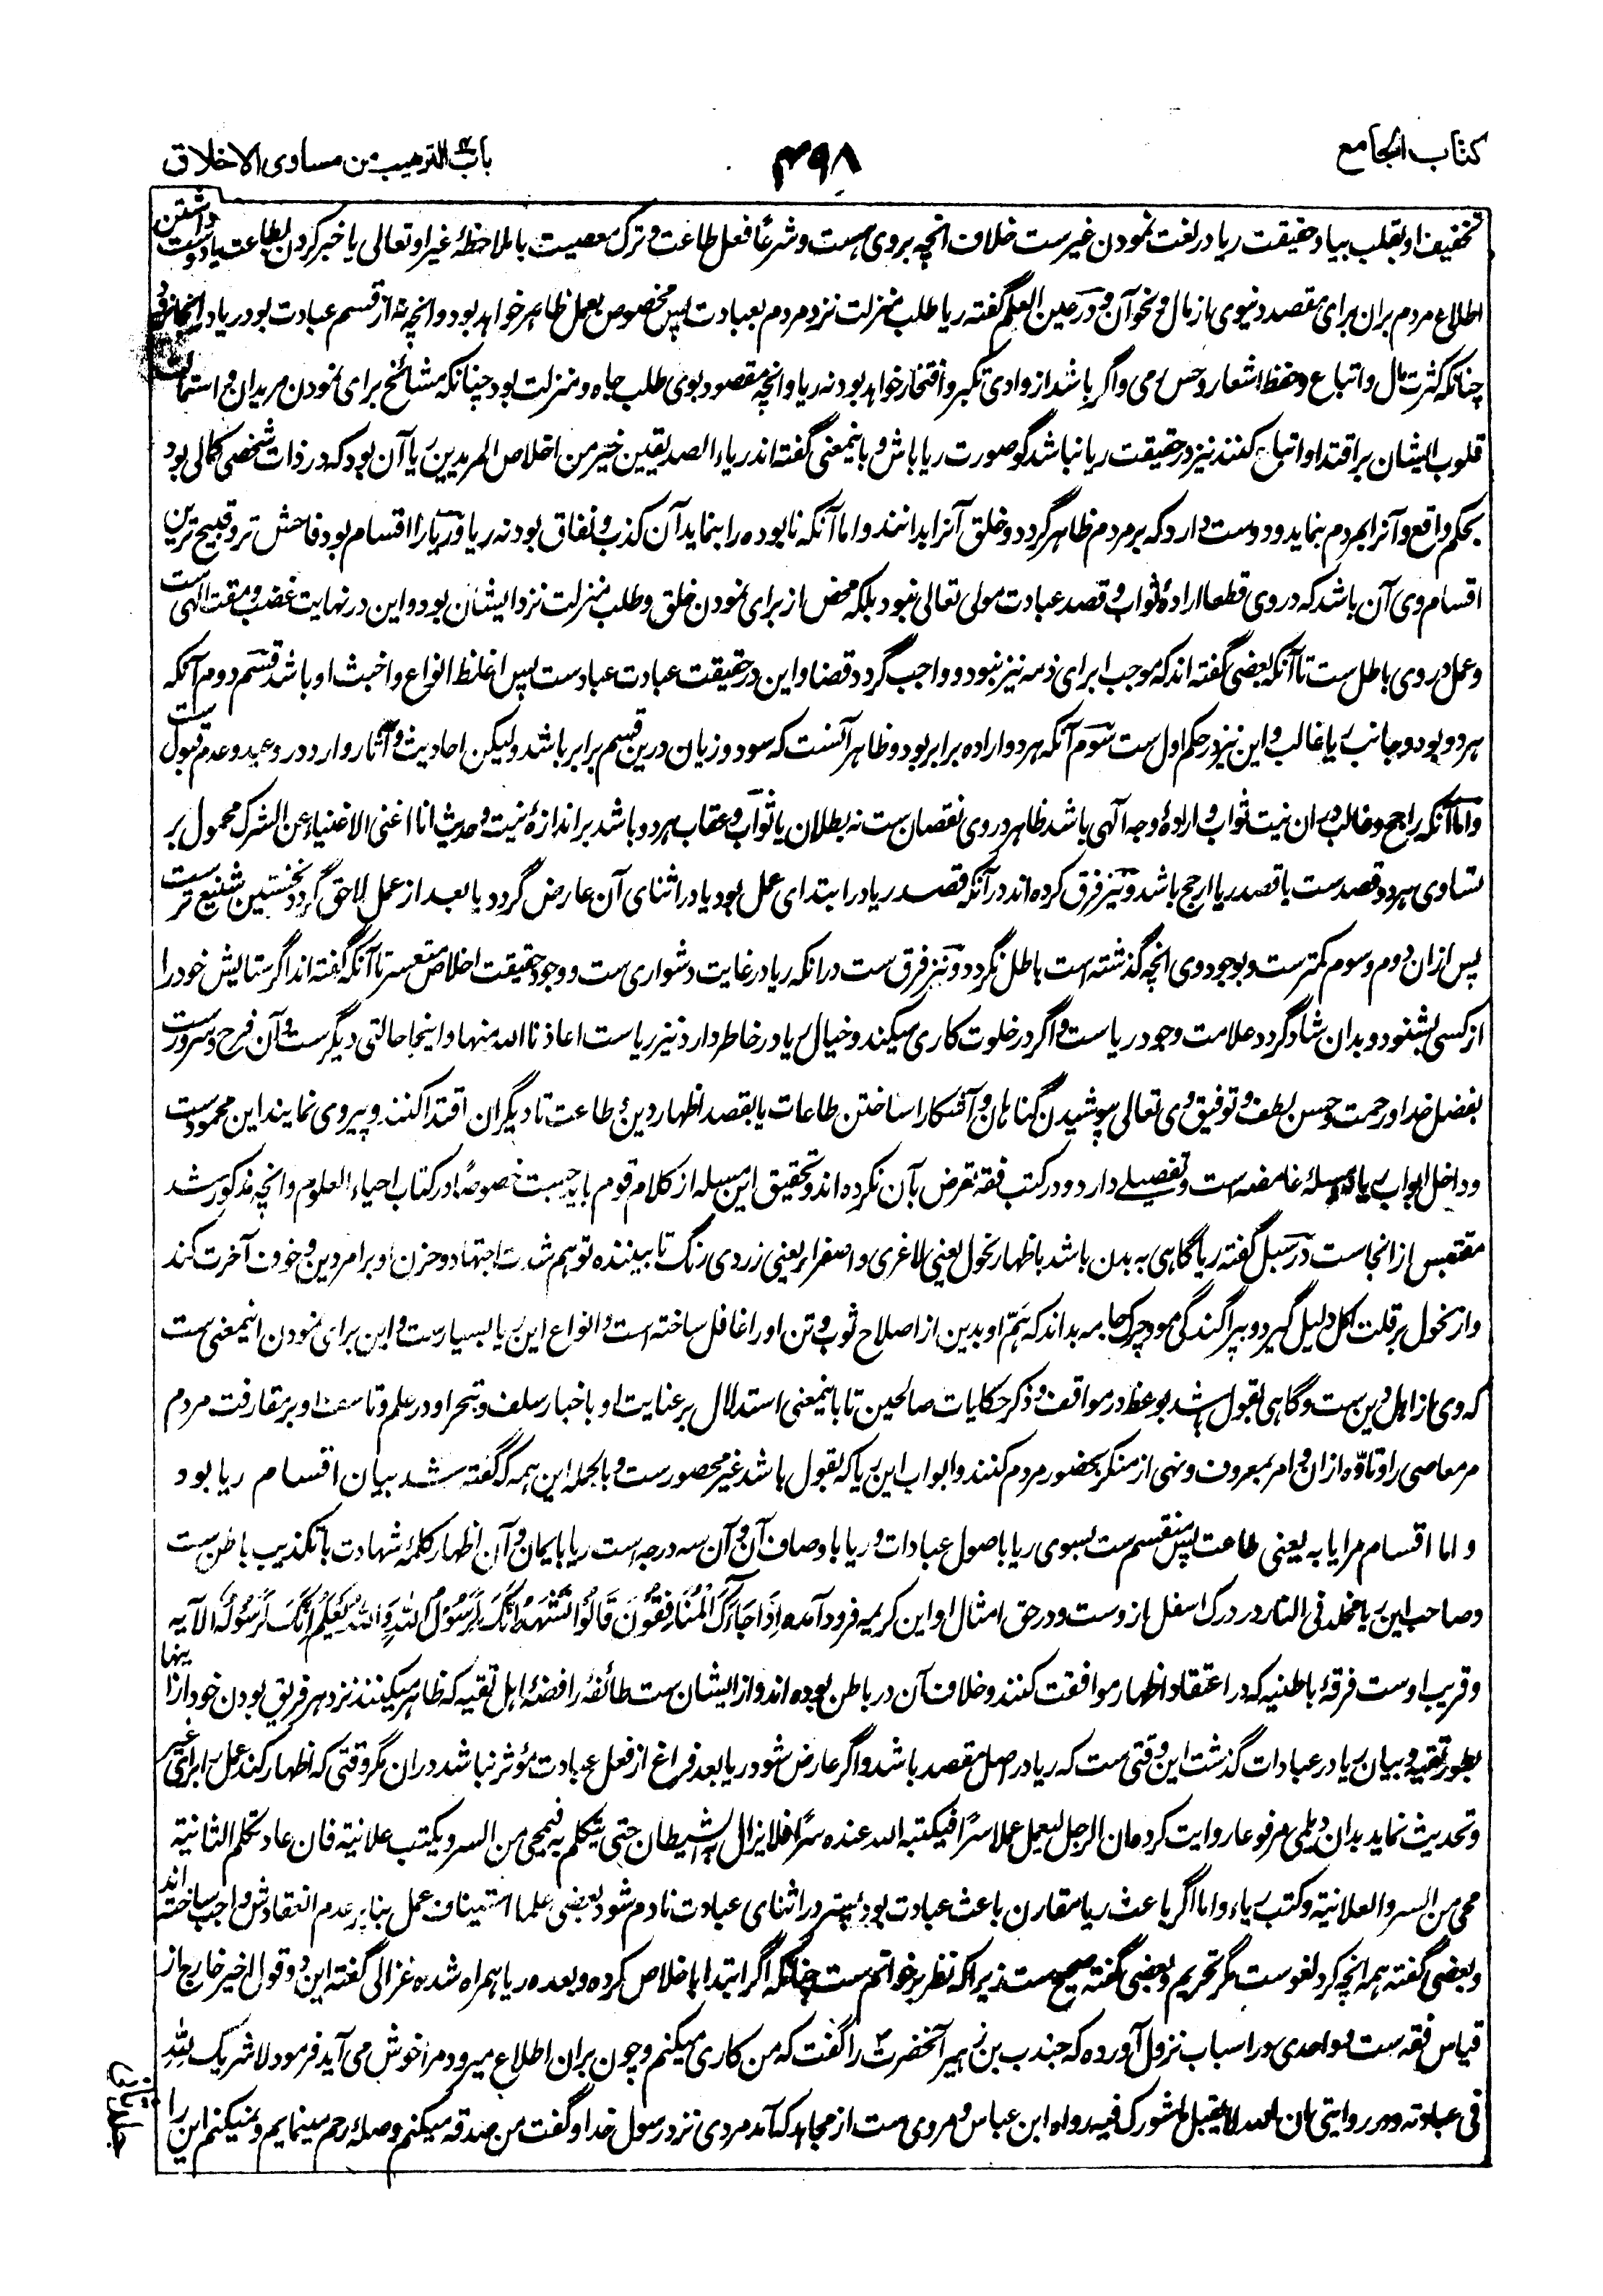 کتاب الجامع
۴۹۸
باب الترهیب من مساوی الاخلاق
تخفیف او بقلب بیا و حقیقت ریا در لغت نمودن غیرست خلاف انچه بروی هست و شرعاً فعل طاعت و ترک معصیت با ملاحظۀ غیر او تعالی یا خبر کردن بطاعت یا دوست داشتن
اطلاع مردم بران برای مقصد دنیوی از مال و نحو آن و در عین العلم گفته ریا طلب منزلت نزد مردم بعبادت پس مخصوص بعمل ظاهر خواهد بود و انچه نه از قسم عبادت بود ریا در انجا نرود
چنانکه کثرت مال و اتباع و حفظ اشعار و حسن رمی و اگر باشد از وادی تکبر و افتخار خواهد بود نه ریا و انچه مقصود بوی طلب جاه و منزلت بود چنانکه مشائخ برای نمودن مریدان و استمالت
قلوب ایشان بر اقتدا و اتباع کنند نیز در حقیقت ریا نباشد گو صورت ریا باش و باینمعنی گفته اند ریاء الصدیقین خیر من اخلاص المریدین ریا آن بود که در ذات شخصی کمالی بود
بحکم واقع و آنرا بمردم بنماید و دوست دارد که بر مردم ظاهر گردد و خلق آنرا بدانند و اما آنکه نابوده را بنماید آن کذب و نفاق بود نه ریا و ریا را اقسام بود فاحش تر و قبیح ترین
اقسام وی آن باشد که در وی قطعا ارادۀ ثواب و قصد عبادت مولی تعالی نبود بلکه محض از برای نمودن خلق و طلب منزلت نزد ایشان بود و این در نهایت غضب و مقت الهی ست
و عمل در وی باطل ست تا آنکه بعضی گفته اند که موجب ابرای ذمه نیز نبود و واجب گردد قضا و این در حقیقت عبادت عبادست پس اغلظ انواع و اخبث او باشد قسم دوم آنکه
هر دو بود و جانب ریا غالب و این نیز در حکم اول ست سوم آنکه هر دو اراده برابر بود و ظاهر آنست که سود و زیان درین قسم برابر باشد ولیکن احادیث و آثار وارد در وعید و عدم قبول ست
و اما آنکه راجح و غالب دران نیت ثواب و ارادۀ وجه الهی باشد ظاهر در وی نقصان ست نه بطلان یا ثواب و عقاب هر دو باشد بر اندازۀ نیت و حدیث انا اغنی الاغنیاء عن الشرک محمول بر
تساوی هر دو قصد ست یا قصد ریا ارجح باشد و نیز فرق کرده اند در آنکه قصد ریا در ابتدای عمل بود یا در اثنای آن عارض گردد یا بعد از عمل لاحق گردد نخستین شنیع تر ست
پس ازان دوم و سوم کمترست و بوجود وی انچه گذشته است باطل نگردد و نیز فرق ست درانکه ریا در غایت دشواری ست و وجود حقیقت اخلاص متعسر تا آنکه گفته اند اگر ستایش خود را
از کسی بشنود و بدان شاد گردد علامت وجود ریاست و اگر در خلوت کاری میکند و خیال ریا در خاطر دارد نیز ریاست اعاذنا الله منها و اینجا حالتی دیگرست و آن فرح و سرورست
بفضل خدا و رحمت و حسن لطف و توفیق وی تعالی بپوشیدن گناهان و آشکارا ساختن طاعات یا بقصد اظهار دین و طاعت تا دیگران اقتدا کنند و پیروی نمایند این محمودست
و داخل ابواب ریا نه مسئلۀ غامضه است و تفصیلے دارد و در کتب فقه تعرض بآن نکرده اند و تحقیق این مسئله از کلام قوم باید جست خصوصًا در کتاب احیاء العلوم و انچه مذکور شد
مقتبس از انجاست در سبل گفته ریا گاهی به بدن باشد باظهار نحول یعنی لاغری و اصفرار یعنی زردی رنگ تا بیننده توهم شدت اجتهاد و حزن او بر امر دین و خوف آخرت کند
و از نحول بر قلت اکل دلیل گیرد و بپراگندگی مو و چرک جامه بداند که هَمّ او بدین از اصلاح ثوب و تن او را غافل ساخته است و انواع این ریا بسیارست و این برای نمودن اینمعنی ست
که وی از اهل دین ست و گاهی بقول باشد بوعظ در مواقف و ذکر حکایات صالحین تا باینمعنی استدلال بر عنایت او باخبار سلف و تبحر او در علم و تاسف او بر مقارفت مردم
مر معاصی را و تاوّه ازان و امر بمعروف و نهی از منکر بحضور مردم کنند و ابواب این ریا که بقول باشد غیر محصورست و بالجمله این همه که گفته شد بیان اقسام ریا بود
و اما اقسام مرایا به یعنی طاعت پس منقسم ست بسوی ریا باصول عبادات و ریا باوصاف آن و آن سه درجه است ریا بایمان و آن اظهار کلمۀ شهادت با تکذیب باطن ست
و صاحب این ریا مخلد فی النار در درک اسفل ازوست و در حق امثال او این کریمه فرود آمده اِذَا جَآءَکَ الْمُنَافِقُوْنَ قَالُوْا نَشْهَدُ اِنَّکَ لَرَسُوْلُ اللّٰهِ وَاللّٰهُ یَعْلَمُ اِنَّکَ لَرَسُوْلُهٗ الآیه
و قریب اوست فرقۀ باطنیه که در اعتقاد اظهار موافقت کنند و خلاف آن در باطن بوده اند و از ایشان ست طائفۀ رافضه اهل تقیه که ظاهر میکنند نزد هر فریق بودن خود از اینها
بطور تقیه و بیان ریا در عبادات گذشت این وقتی ست که ریا در اصل مقصد باشد و اگر عارض شود ریا بعد فراغ از فعل عبادت مؤثر نباشد دران مگر وقتی که اظهار کند عمل را برای غیر
و تحدیث نماید بدان دیلمی مرفوعا روایت کرده ان الرجل لیعمل عملا سرًا فیکتبه الله عنده سرًا فلا یزال به الشیطان حتی یتکلم به فیمحی من السر و یکتب علانیة فان عاد تکلم الثانیة
محی من السر والعلانیة وکتب ریاء و اما اگر باعث ریا مقارن باعث عبادت بود پستر در اثنای عبادت نادم شود بعضی علما استیناف عمل بنا بر عدم انعقادش واجب ساخته اند
و بعضی گفته همه انچه کرد لغوست مگر تحریم و بعضی گفته صحیح ست زیراکه نظر بر خواتم ست چنانکه اگر ابتدا باخلاص کرده و بعده ریا همراه شده غزالی گفته این دو قول اخیر خارج از
قیاس فقه ست و واحدی در اسباب نزول آورده که جندب بن زهیر آنحضرت را گفت که من کاری میکنم و چون بران اطلاع میرود مرا خوش می آید فرمود لا شریک لِلّٰهِ
فی عبادته و در روایتی ان الله لا یقبل ما شورک فیه رواه ابن عباس و مروی ست از مجاهد که آمد مردی نزد رسول خدا و گفت من صدقه میکنم و صلۀ رحم مینمایم و نمیکنم این را
جلد ثانی